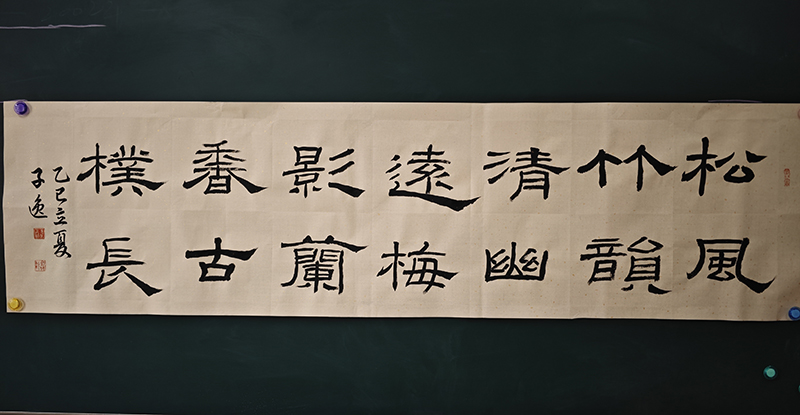 松風
竹韻
清幽
遠梅
影蘭
香古
樸長
乙巳立夏
子逸